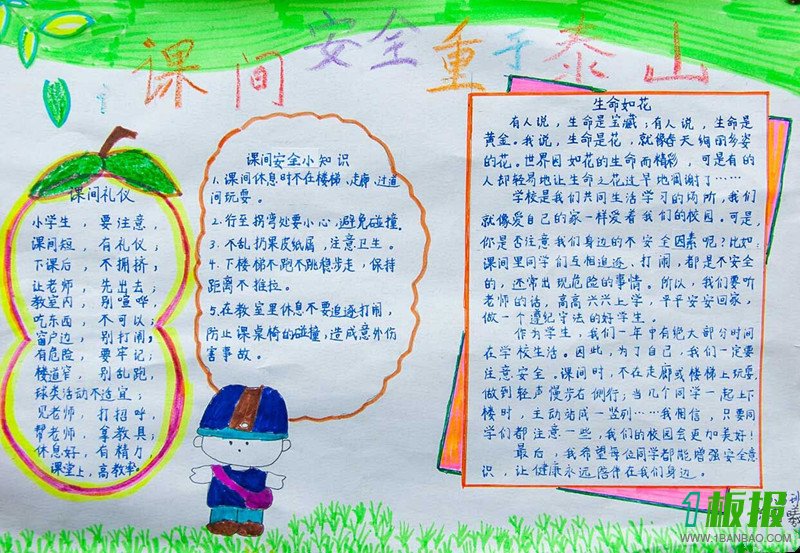 课间安全重于泰山
课间礼仪
小学生，要注意，
课间短，有礼仪；
下课后，不拥挤；
让老师，先出去；
教室内，别喧哗，
吃东西，不可以；
窗户边，别打闹；
有危险，要牢记；
楼道窄，别乱跑，
球类活动不适宜；
见老师，打招呼，
帮老师，拿教具；
休息好，有精力，
课堂上，高教率。
课间安全小知识
1、课间休息时不在楼梯、走廊、过道
间玩耍。
2、行至拐弯处要小心，避免碰撞。
3、不乱扔果皮纸屑，注意卫生。
4、下楼梯不跑不跳稳步走，保持
距离不推拉。
5、在教室里休息不要追逐打闹，
防止课桌椅的碰撞，造成意外伤
害事故。
生命如花
有人说，生命是宝藏；有人说，生命是
黄金。我说，生命是花，就像春天绚丽多姿
的花。世界因如花的生命而精彩，可是有的
人却轻易地让生命之花过早地凋谢了……
学校是我们共同生活学习的场所，我们
就像爱自己的家一样爱着我们的校园。可是
你是否注意我们身边的不安全因素呢？比如：
课间里同学们互相追逐、打闹，都是不安全
的，还常出现危险的事情。所以，我们要听
老师的话，高高兴兴上学，平平安安回家，
做一个遵纪守法的好学生。
作为学生，我们一年中有绝大部分时间
在学校生活。因此，为了自己，我们一定要
注意安全。课间时，不在走廊或楼梯上玩耍，
做到轻声慢步右侧行；当几个同学一起上下
楼时，主动站成一竖列……我相信，只要同
学们都注意一些，我们的校园会更加美好！
最后，我希望每位同学都能增强安全意
识，让健康永远陪伴在我们身边。
1板报
WWW.1BANBAO.COM